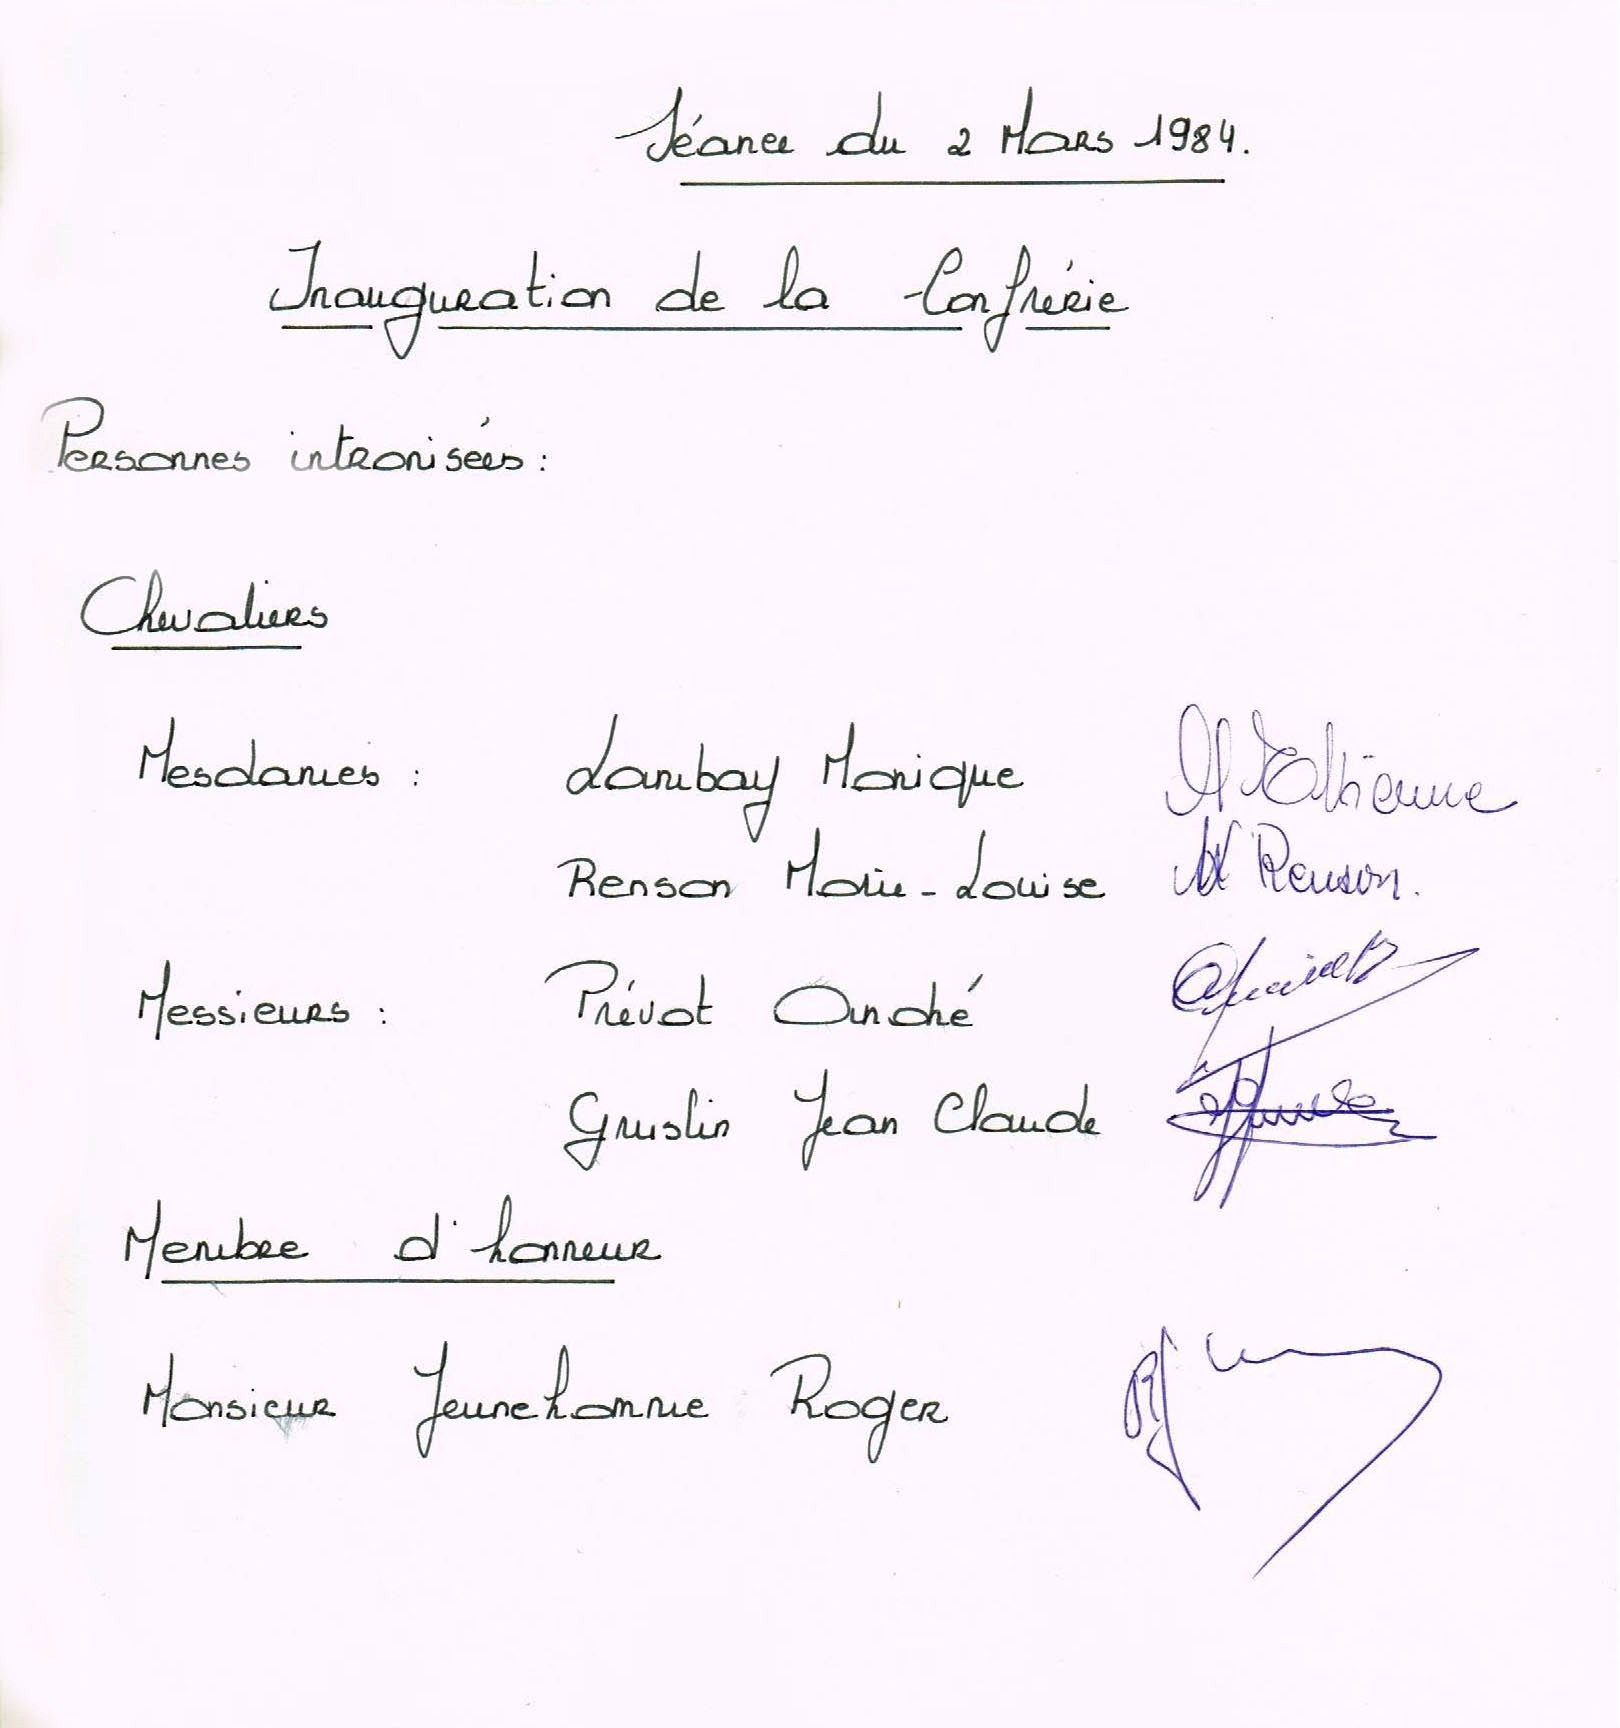 Séance du 2 Mars 1984.
Inauguration de la Confrérie
Personnes intronisées :
Chevaliers
Mesdames : Lambay Monique
Renson Marie-Louise M Renson.
Messieurs : Prévot André
Gruslin Jean Claude
Membre d'honneur
Monsieur Jeunehomme Roger